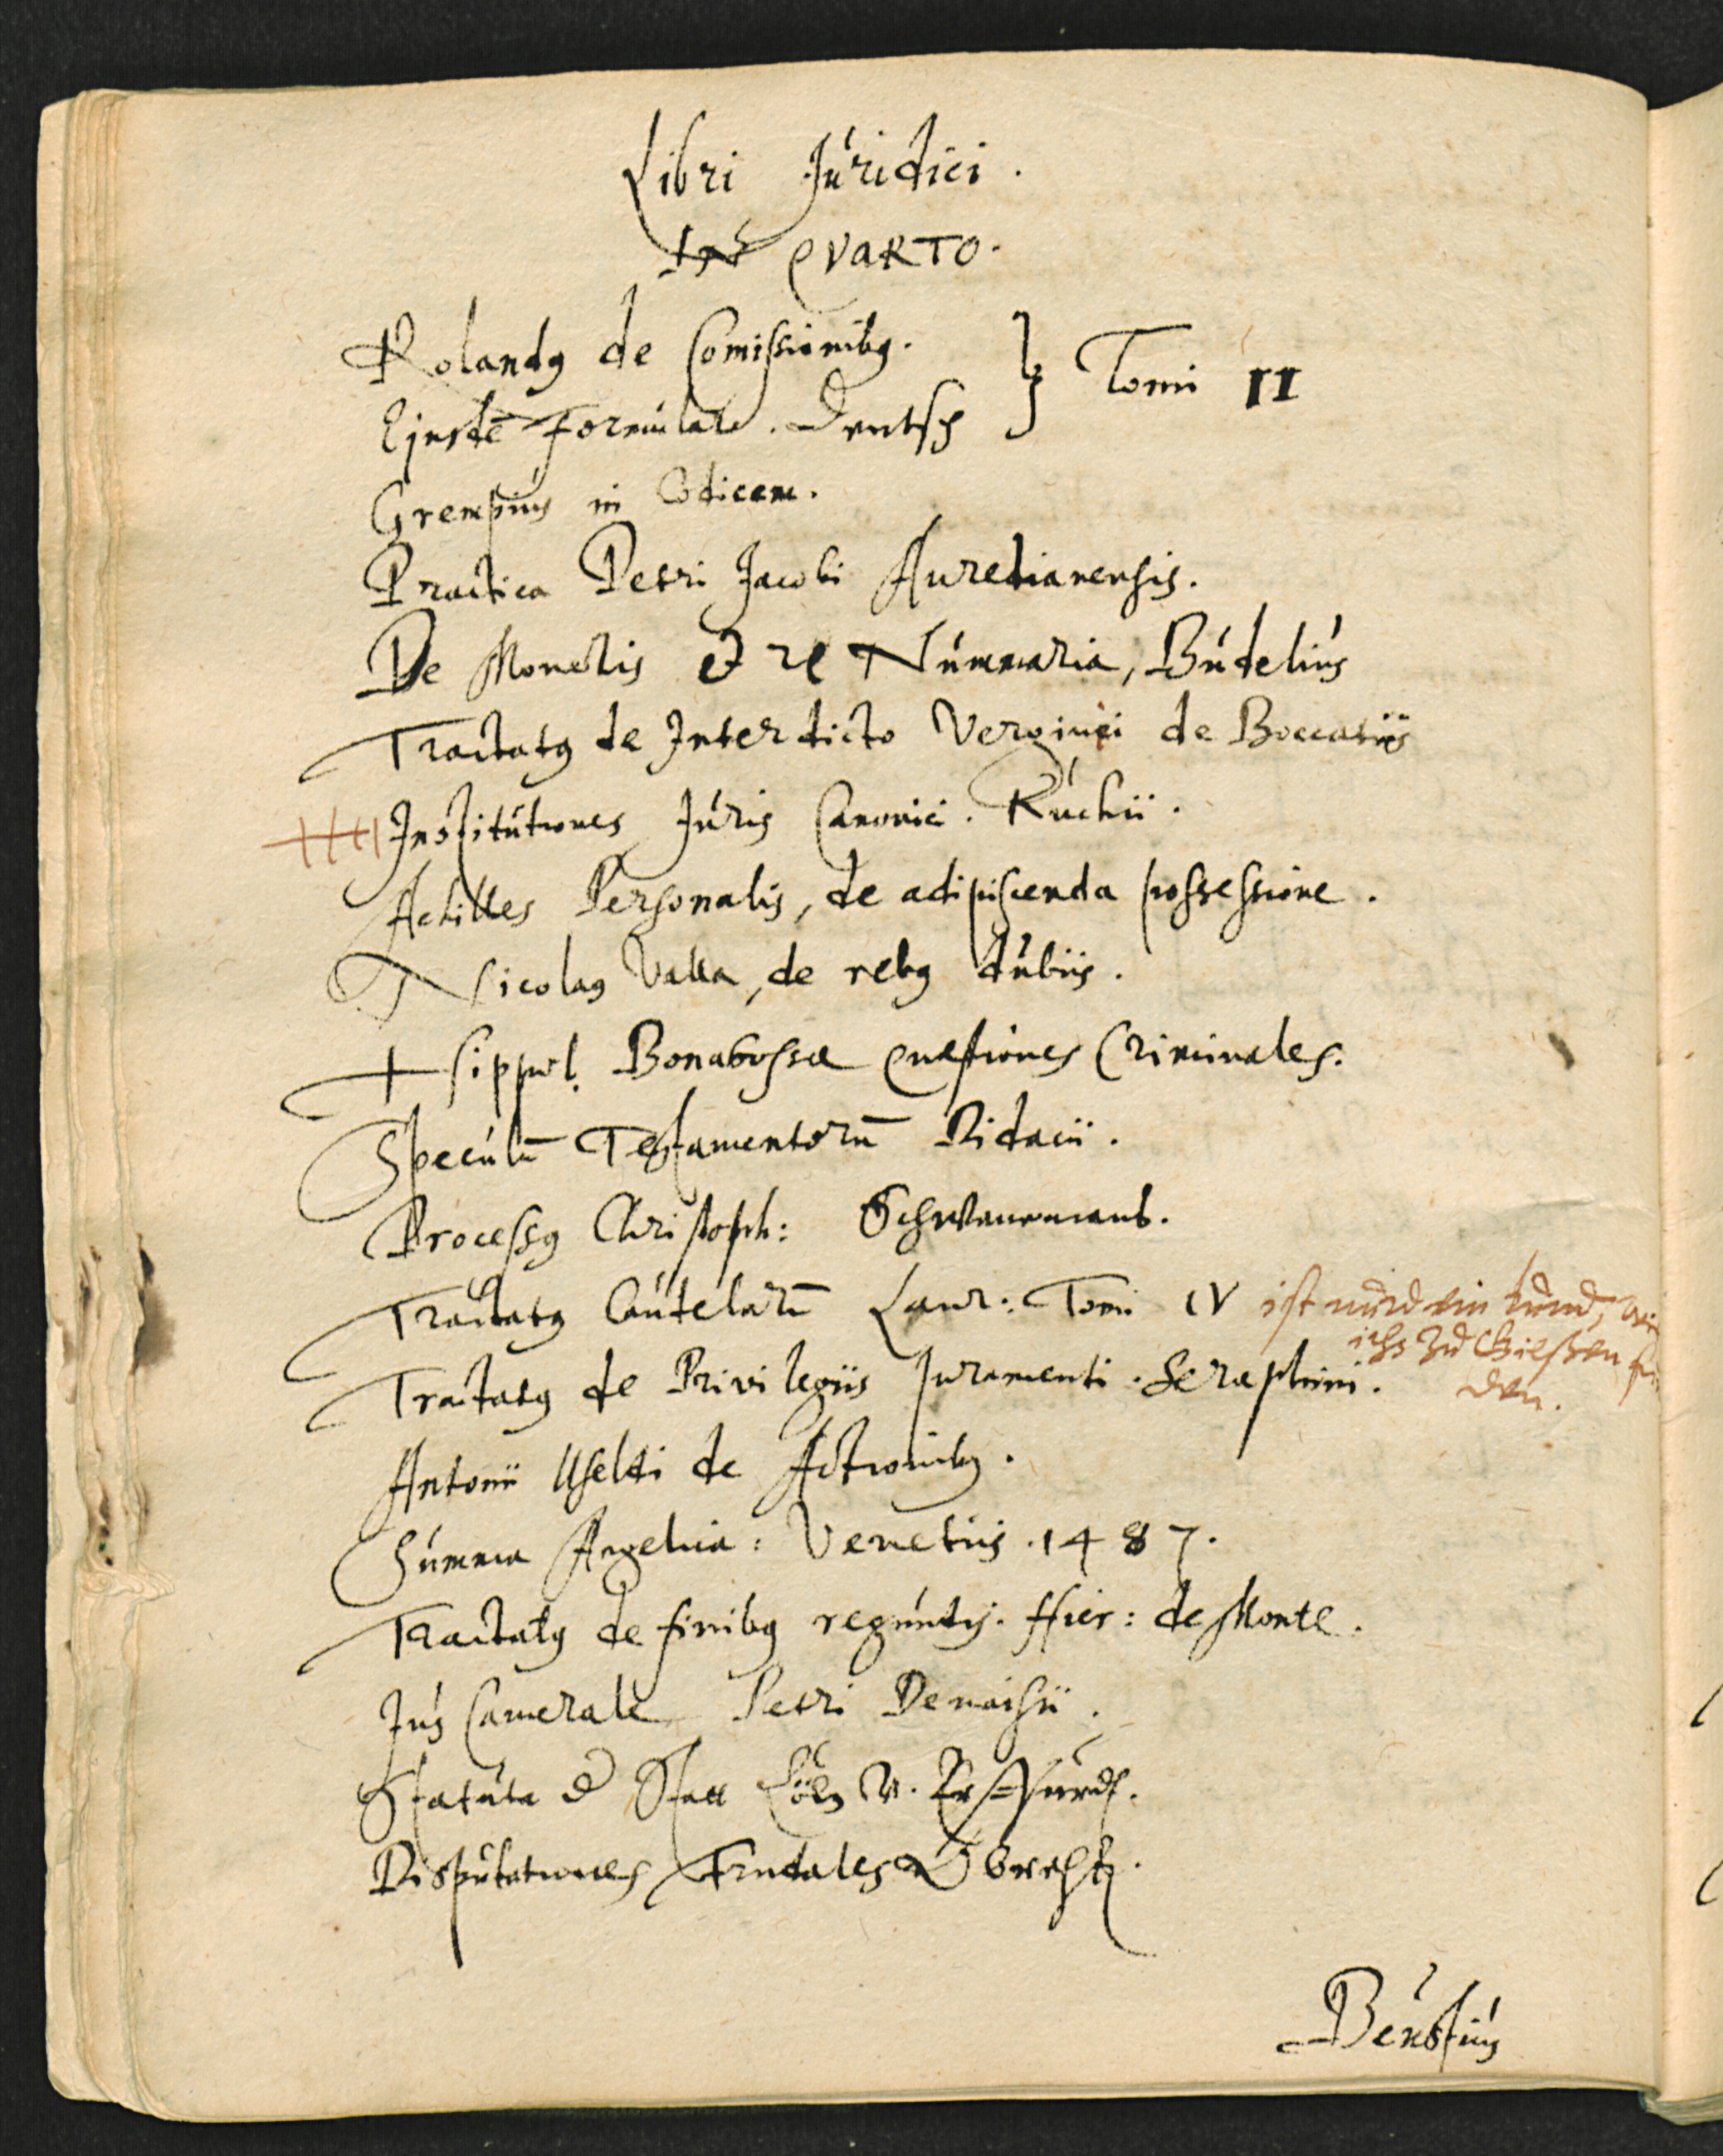 Libri Juridici.
In QVARTO.
Rolandꝯ de Comissionibꝯ.
Ejusdē Formulare. Deutsch } Tomi II
Grempius in Codicem.
Practica Petri Jacobi Aurelianensis.
De Monetis et re Nummaria, Budelius
Tractatꝯ de Interdicto Verginii de Boccatiis
Institutiones Juris Canonici. Kuchii.
Achilles Personalis, de adipiscenda possessione.
Nicolaꝯ Valla, de rebꝯ dubiis.
Hippol. Bonacossæ Quæstiones Criminales.
Speculū Testamentorū Didacii.
Processꝯ Christoph: Schwanmanß.
Tractatꝯ Cautelarū Laur: Tomi IV ist nurd ein bund, wie
ichs zu Gießen fun
den.
Tractatꝯ de Privilegiis Juramenti. Seraphini.
Antonii de Actionibꝯ.
Summa Angelica: Venetiis. 1487.
Tractatꝯ de finibꝯ regundis. Hier: de Monte.
Jus Camerale Petri Denaisii.
Statuta d Statt Cöln
Disputationes Feudales Obrechti.